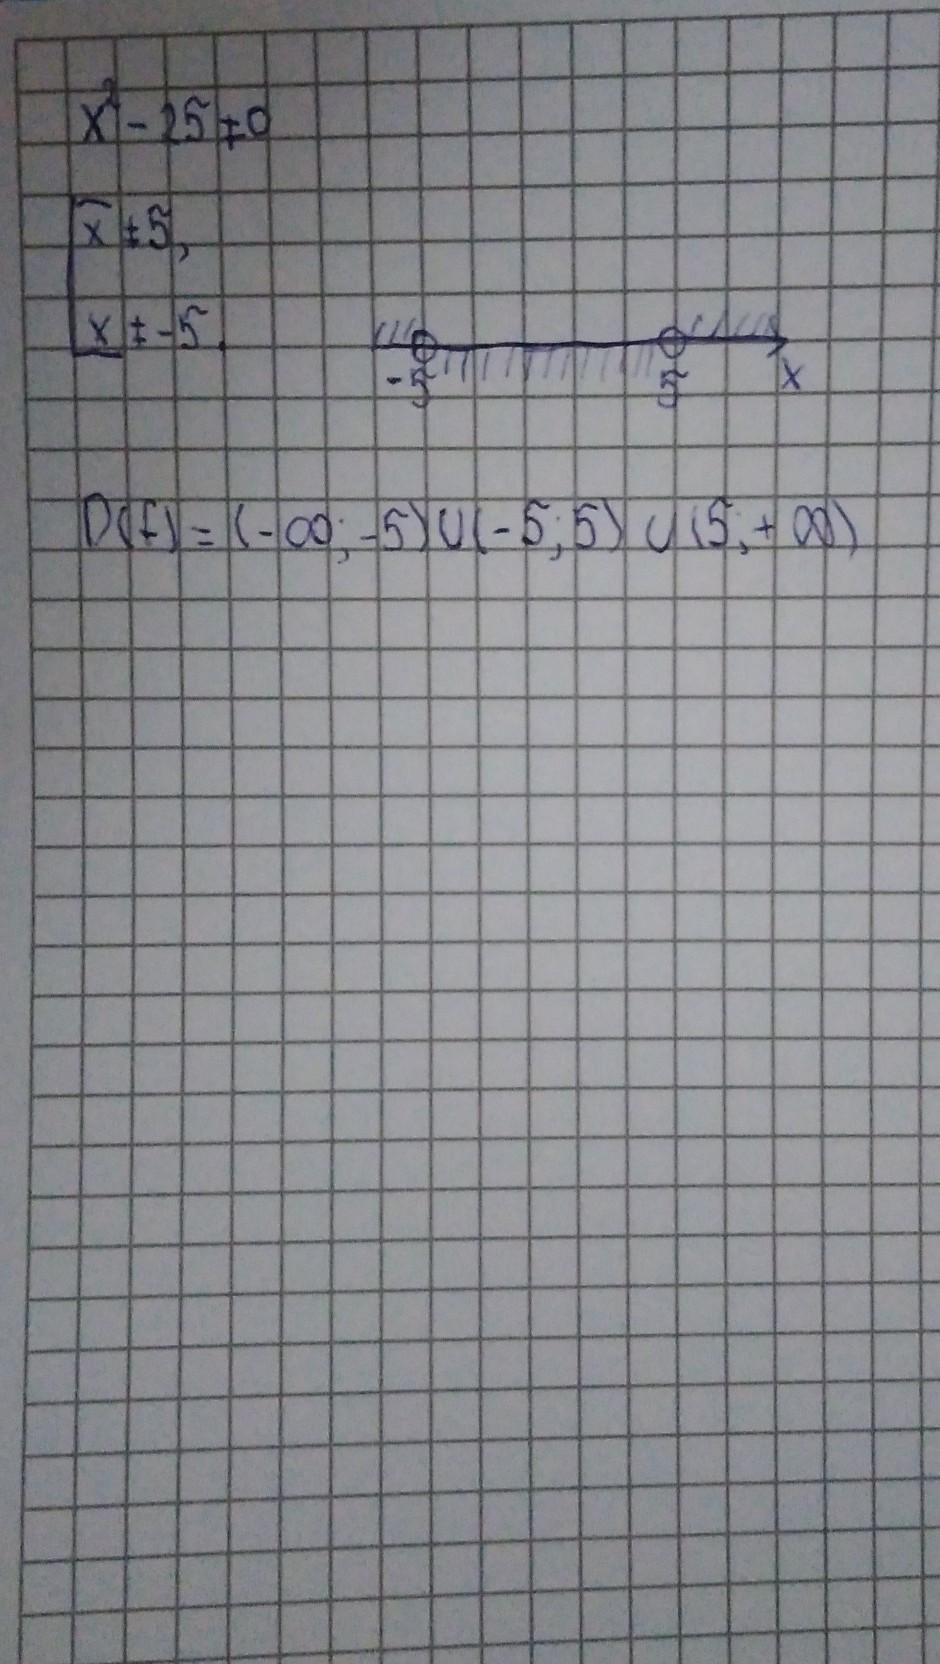 x² - 25 ≠ 0
[x ≠ 5,
[x ≠ -5.
-5 5 x
D(f) = (-∞; -5) ∪ (-5; 5) ∪ (5; +∞)